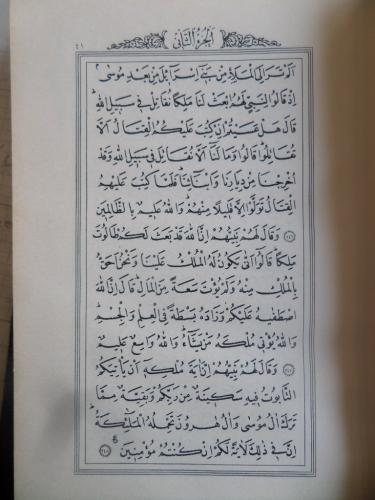 ٤١ الجزء الثاني
الم تر الى الملا من بني اسرائل من بعد موسى
اذ قالوا لنبي لهم ابعث لنا ملكا نقاتل في سبيل الله
قال هل عسيتم ان كتب عليكم القتال الا
تقاتلوا قالوا وما لنا الا نقاتل في سبيل الله وقد
اخرجنا من ديارنا وابنائنا فلما كتب عليهم
القتال تولوا الا قليلا منهم والله عليم بالظالمين
٢٤٦ وقال لهم نبيهم ان الله قد بعث لكم طالوت
ملكا قالوا انى يكون له الملك علينا ونحن احق
بالملك منه ولم يؤت سعة من المال قال ان الله
اصطفيه عليكم وزاده بسطة في العلم والجسم
والله يؤتي ملكه من يشاء والله واسع عليم
٢٤٧ وقال لهم نبيهم ان اية ملكه ان ياتيكم
التابوت فيه سكينة من ربكم وبقية مما
ترك ال موسى وال هرون تحمله الملئكة
ان في ذلك لاية لكم ان كنتم مؤمنين ٢٤٨